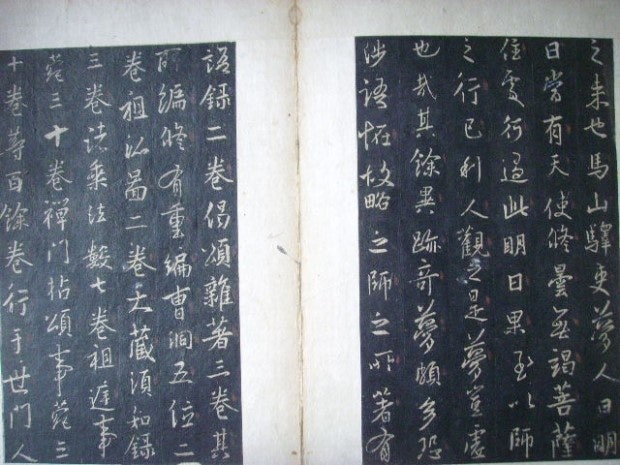 之未也馬山驛吏夢人曰明
日當有天使修曇無竭菩薩
住處行過此明日果至以師
之行已利人觀之是夢豈虛
也哉其餘異跡奇夢頗多恐
涉語怪故略之師之所著有
語錄二卷偈頌雜著三卷其
所編修有重編曹洞五位二
卷祖派啚二卷大藏須知錄
三卷諸乘法數七卷祖庭事
苑三十卷禪門拈頌事苑三
十卷等百餘卷行于世門人